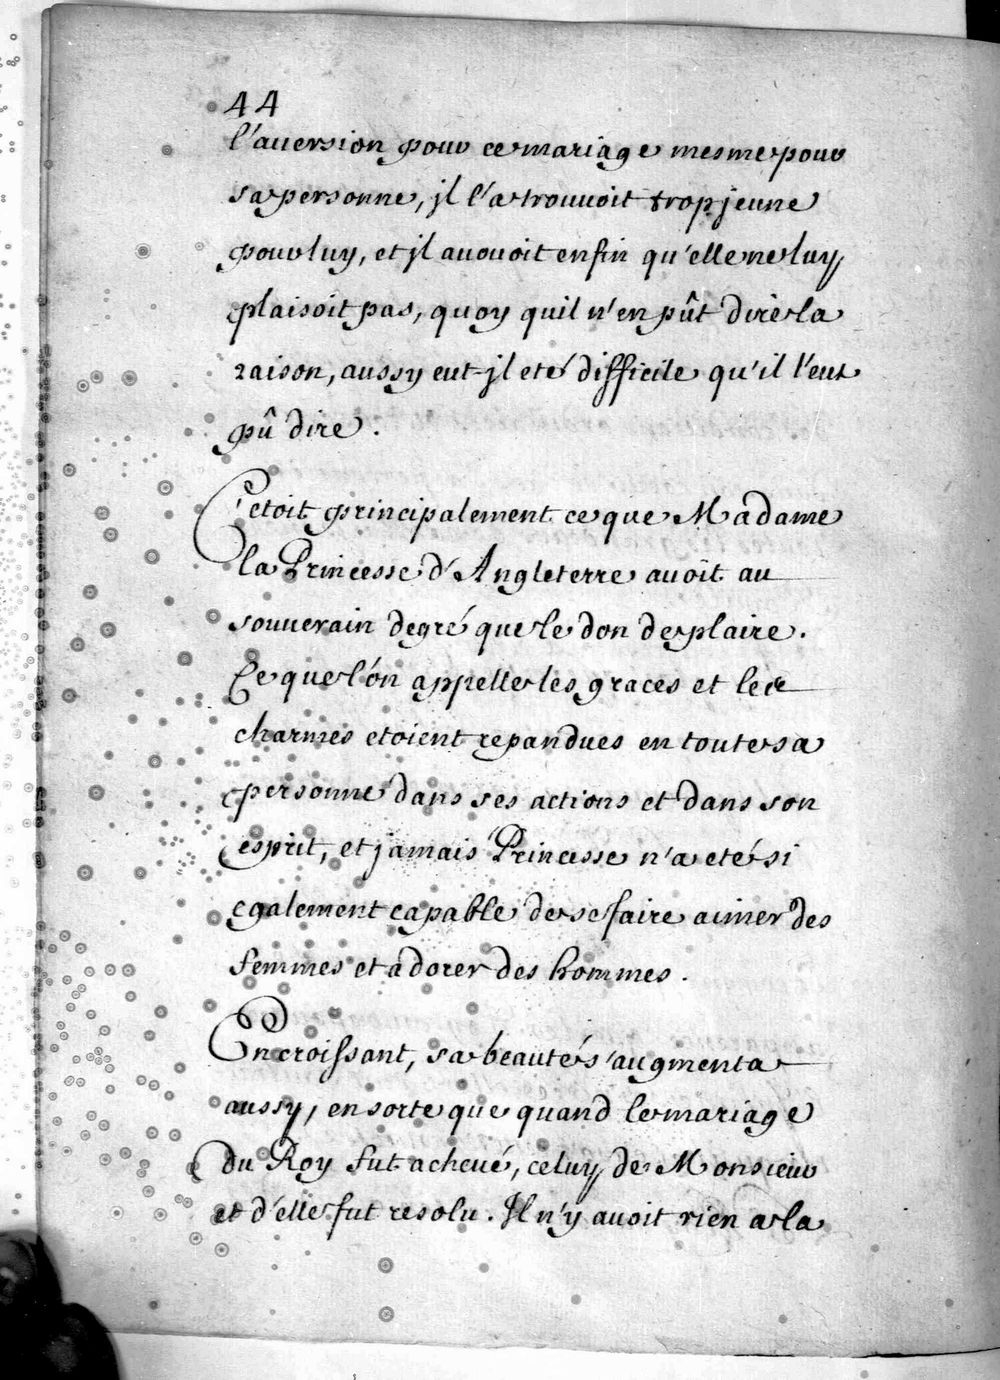 44
l'auersion pour ce mariage mesme pour
sa personne, jl l'a trouuoit trop jeune
pour luy, et jl auouoit enfin qu'elle ne luy
plaisoit pas, quoy quil n'en pût dire la
raison, aussy eut-jl eté difficile qu'il l'eut
pû dire.
C'etoit principalement ce que Madame
la Princesse d'Angleterre auoit au
souuerain degré que le don de plaire.
Ce que l'ón appelle les graces et les
charmes etoient repandues en toute sa
personne dans ses actions et dans son
esprit, et jamais Princesse n'a eté si
egalement capable de se faire aimer des
femmes et adorer des hommes.
En croissant, sa beauté s'augmenta
aussy, en sorte que quand le mariage
du Roy fut acheué, celuy de Monsieur
et d'elle fut resolu. Il n'y auoit rien a la